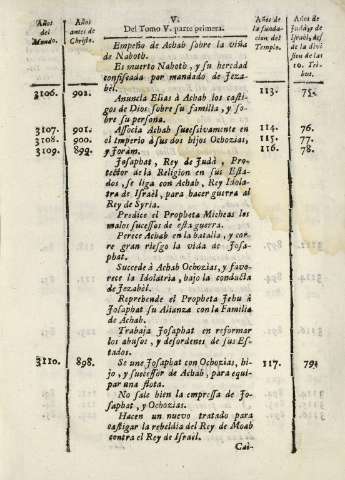 Años
del
Mundo.
Años
antes de
Christo.
V.
Del Tomo V. parte primera.
Años de
la funda-
cion del
Templo.
Años de
Judà, y de
Israèl, des-
de la divi-
sion de las
10. Tri-
bus.
Empeño de Achab sobre la viña
de Naboth.
Es muerto Naboth, y su heredad
confiscada por mandado de Jeza-
bèl.
3106. 901. Anuncia Elias à Achab los casti- 113. 75.
gos de Dios sobre su familia, y so-
bre su persona.
3107. 901. Associa Achab sucessivamente en 114. 76.
3108. 900. el Imperio à sus dos hijos Ochozias, 115. 77.
3109. 899. y Joràm. 116. 78.
Josaphat, Rey de Judà, Pro-
tector de la Religion en sus Esta-
dos, se liga con Achab, Rey Idola-
tra de Israèl, para hacer guerra al
Rey de Syria.
Predice el Propheta Micheas los
malos sucessos de esta guerra.
Perece Achab en la batalla, y cor-
re gran riesgo la vida de Josa-
phat.
Succede à Achab Ochozias, y favo-
rece la Idolatria, bajo la conducta
de Jezabèl.
Reprehende el Propheta Jehu à
Josaphat su Alianza con la Familia
de Achab.
Trabaja Josaphat en reformar
los abusos, y desordenes de sus Es-
tados.
3110. 898. Se une Josaphat con Ochozias, hi- 117. 79.
jo, y sucessor de Achab, para equi-
par una flota.
No sale bien la empressa de Jo-
saphat, y Ochozias.
Hacen un nuevo tratado para
castigar la rebeldia del Rey de Moab
contra el Rey de Israèl.
Cai-